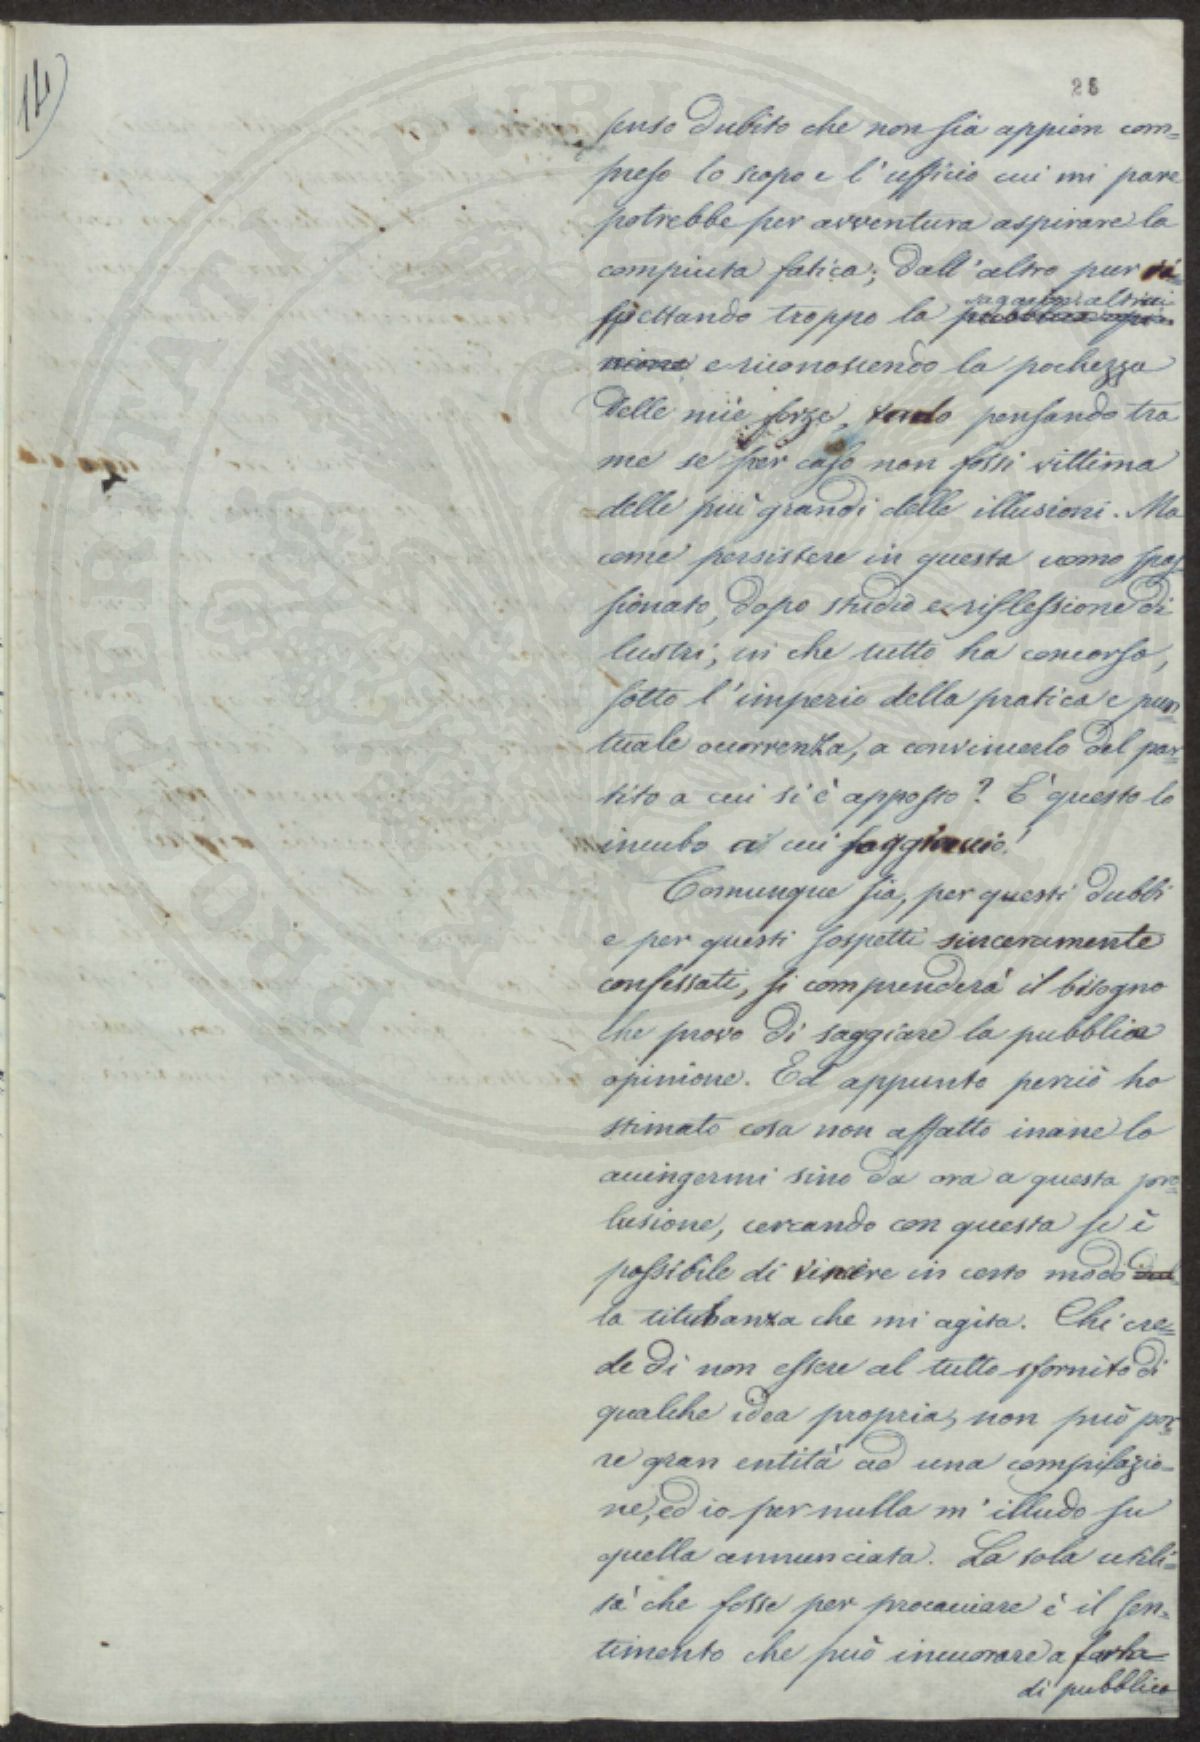 14)
25
penso dubito che non sia appien com=
preso lo scopo e l'ufficio cui mi pare
potrebbe per avventura aspirare la
compiuta fatica; dall'altro pur ri=
spettando troppo la sagacione altrui pubblica opi=
nione e riconoscendo la pochezza
delle mie forze, vado pensando tra
me se per caso non fossi vittima
delle più grandi delle illusioni. Ma
come persistere in questa uomo spas=
sionato, dopo studio e riflessione di
lustri; in che tutto ha concorso,
sotto l'imperio della pratica e pun
tuale occorrenza, a convincerlo del par=
tito a cui si è apposto? E' questo lo
incubo a cui soggiaccio!
Comunque sia, per questi dubbi
e per questi sospetti sinceramente
confessati, si comprenderà il bisogno
che provo di saggiare la pubblica
opinione. Ed appunto perciò ho
stimato cosa non affatto inane lo
accingermi sino da ora a questa pro=
lusione, cercando con questa se è
possibile di vincere in certo modo
la titubanza che mi agita. Chi cre=
de di non essere al tutto sfornito di
qualche idea propria, non può por=
re gran entità ad una compilazio=
ne, ed io per nulla m'illudo su
quella annunciata. La sola utili=
tà che fosse per procacciare è il sen=
timento che può incuorare a farla
di pubblico
PROPERTIES PUBLIC